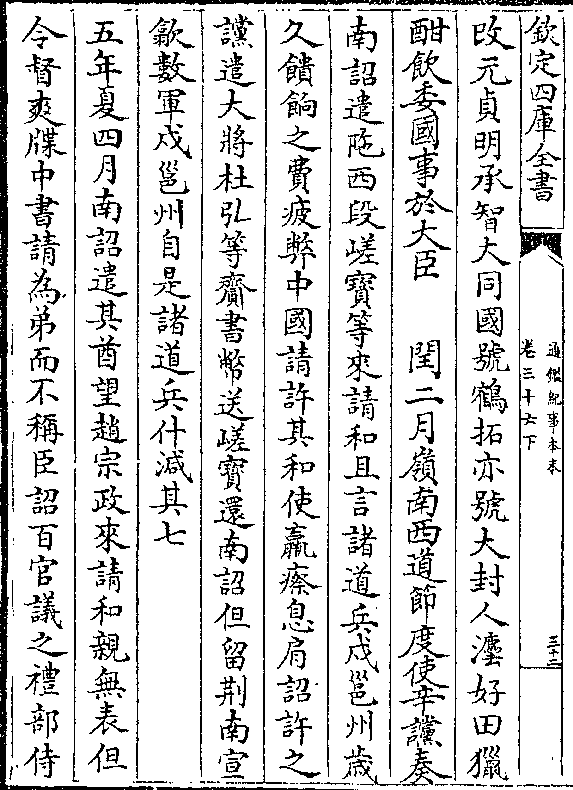 欽定四庫全書
通鑑紀事本末
卷三十六下
三十二
改元貞明承智大同國號鶴拓亦號大封人瀍好田獵
酣飲委國事於大臣　閏二月嶺南西道節度使辛讜奏
南詔遣陁西段嵯寶等來請和且言諸道兵戍邕州歳
久饋餉之費疲弊中國請許其和使羸瘵息肩詔許之
讜遣大將杜弘等齎書幣送嵯寶還南詔但留荆南宣
歙數軍戍邕州自是諸道兵什減其七
五年夏四月南詔遣其酋望趙宗政來請和親無表但
令督爽牒中書請為弟而不稱臣詔百官議之禮部侍